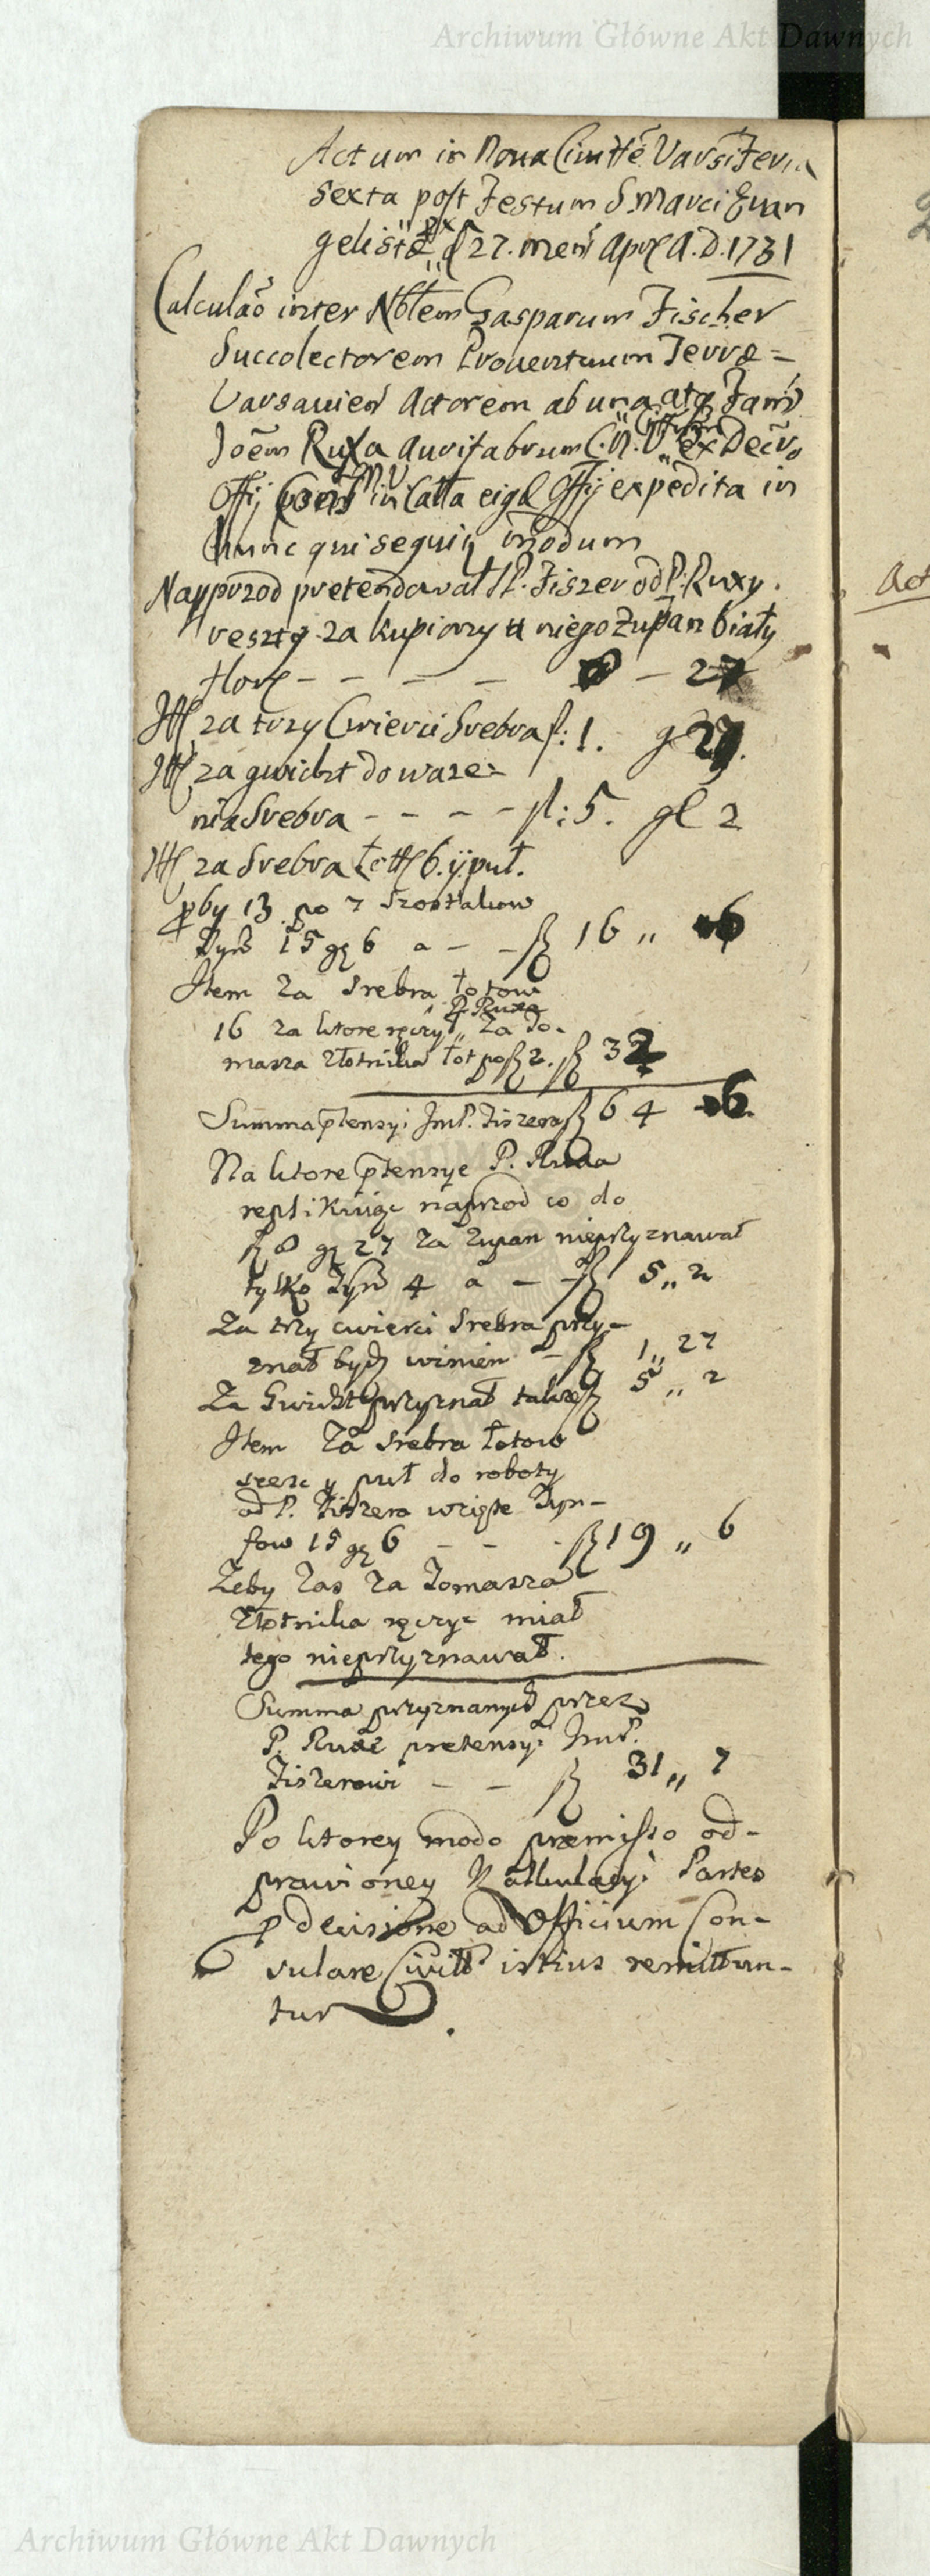 Archiwum Główne Akt Dawnych
Actum in Noua Ciuitte Vars: Feria
sexta post Festum S Marci Euan
gelistæ d 27. mens Apr A.D. 1731
Calculāo inter Nobtem Gasparum Fischer
Succolectorem Prouentuum Terræ =
Varsauien Actorem ab una atq Fam
Joēm Ruxa Aurifabrum C.N.V. Citatum ex Decro
Offij Cons N.V. in Catta eigd Offij expedita in
hunc qui sequit modum
Nayprzod pretendował JP. Fiszer od P. Ruxy.
reszty za kupiony u niego Zupan biały
flor — — — — 8 — 27
Itt za trzy Cwierci Srebra f: 1. g 27.
Itt za gwicht do waze=
nia Srebra - - - - fl: 5. gl 2
Itt za Srebra łott 6. y puł.
pby 13 po 7 szostakow
Tynf 15 gr 6 a — - fl 16 „ 6
Item za Srebra łotow
16 za ktore ręczył P. Ruxa za To-
masza złotnika łot po fl 2. fl 32
Summa ptensyi JmP. Fiszera fl 64 6
Na ktore ptensye P. Ruxa
replikuiąc naprzod co do
fl 8 gr 27 za zupan nieprzyznawał
tylko Tynf 4 a — fl 5 „ 2
Za trzy cwierci Srebra przy-
znał bydz winien — fl 1 „ 27
Za Gwicht przyznał takze fl 5 „ 2
Item Za Srebra łotow
szesc y puł do roboty
od P. Fiszera wzięte Tyn-
fow 15 gr 6 - - fl 19 „ 6
Zeby zas za Tomasza
Złotnika ręczyc miał
tego nieprzyznawał.
Summa przyznanych przez
P. Ruxę pretensyi JmP.
Fiszerowi — — fl 31 „ 7
Po ktorey modo præmisso od-
prawioney Kalkulacyi Partes
p decisione ad Officium Con-
sulare Ciuitt istius remittun-
tur.
Act
Archiwum Główne Akt Dawnych